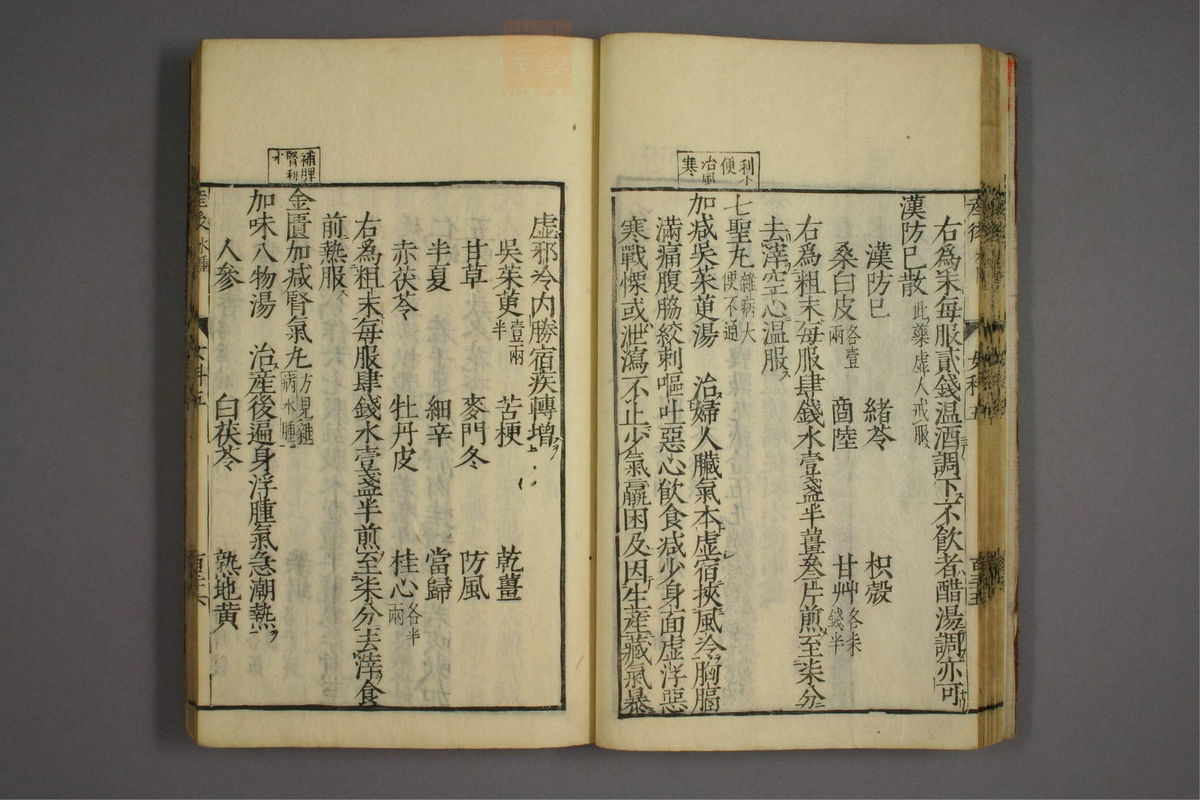 右爲末每服貳錢温酒調下不飲者醋湯調亦可
漢防巳散此藥虛人戒服
漢防巳 緒苓 枳殼
桑白皮各壹兩 商陸 甘艸各柒錢半
右爲粗末每服肆錢水壹盞半薑叄片煎至柒分
去滓空心温服
利小便
七聖丸雜病大便不通
治風寒
加减吳茱萸湯 治婦人臟氣本虛宿挾風冷胸膈
滿痛腹脇絞刺嘔吐惡心飲食减少身面虛浮惡
寒戰慄或泄瀉不止少氣羸困及因生產藏氣暴
產後
女科五
虛邪冷内勝宿疾轉增
吳茱萸壹兩半 苦梗 乾薑
甘草 麥門冬 防風
半夏 細辛 當歸
赤茯苓 牡丹皮 桂心各半兩
右爲粗末每服肆錢水壹盞半煎至柒分去滓食
前熱服
補脾腎利水
金匱加减腎氣丸方見雜病水腫
加味八物湯 治產後遍身浮腫氣急潮熱
人參 白茯苓 熟地黄
產後 水腫
女科五